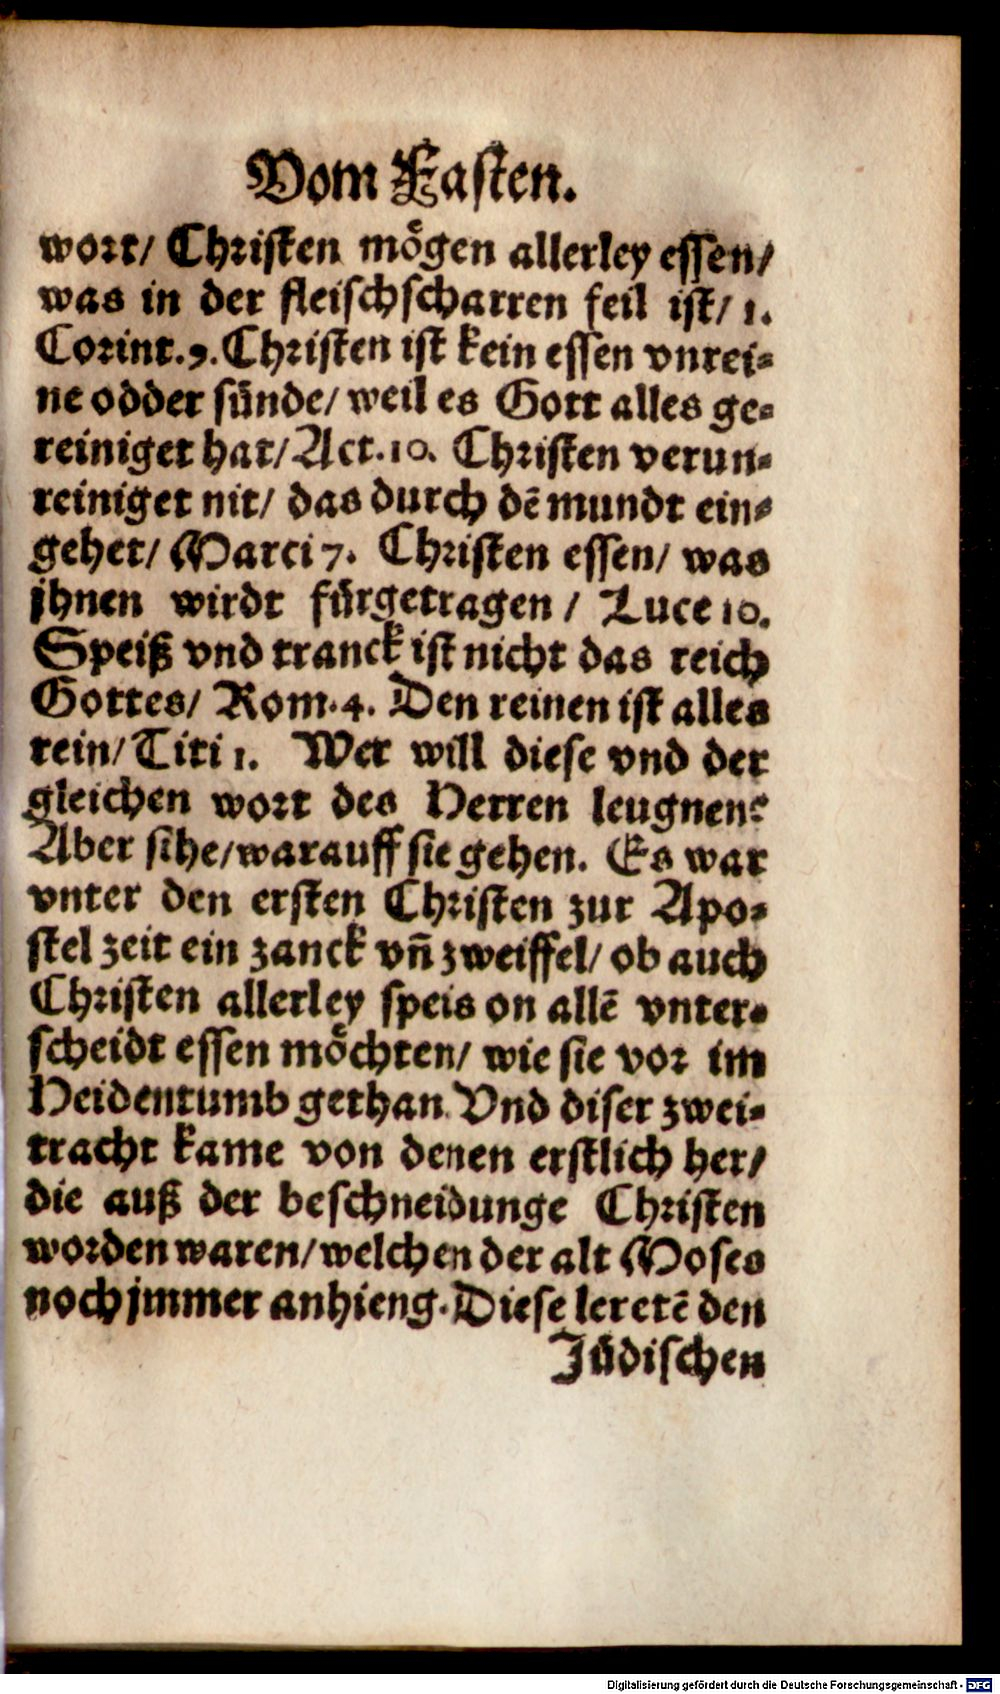 Vom Fasten.
wort/ Christen mögen allerley essen/
was in der fleischscharren feil ist/ 1.
Corint. 9. Christen ist kein essen vnrei-
ne odder sünde/ weil es Gott alles ge-
reiniget hat/ Act. 10. Christen verun-
reiniget nit/ das durch dē mundt ein-
gehet/ Marci 7. Christen essen/ was
jhnen wirdt fürgetragen / Luce 10.
Speiß vnd tranck ist nicht das reich
Gottes/ Rom. 4. Den reinen ist alles
rein/ Titi 1. Wer will diese vnd der
gleichen wort des Herren leugnen?
Aber sihe/ warauff sie gehen. Es war
vnter den ersten Christen zur Apo-
stel zeit ein zanck vn̄ zweiffel/ ob auch
Christen allerley speis on allē vnter-
scheidt essen möchten/ wie sie vor im
Heidentumb gethan. Vnd diser zwei-
tracht kame von denen erstlich her/
die auß der beschneidunge Christen
worden waren/ welchen der alt Moses
noch jmmer anhieng. Diese leretē den
Jüdischen
Digitalisierung gefördert durch die Deutsche Forschungsgemeinschaft - DFG